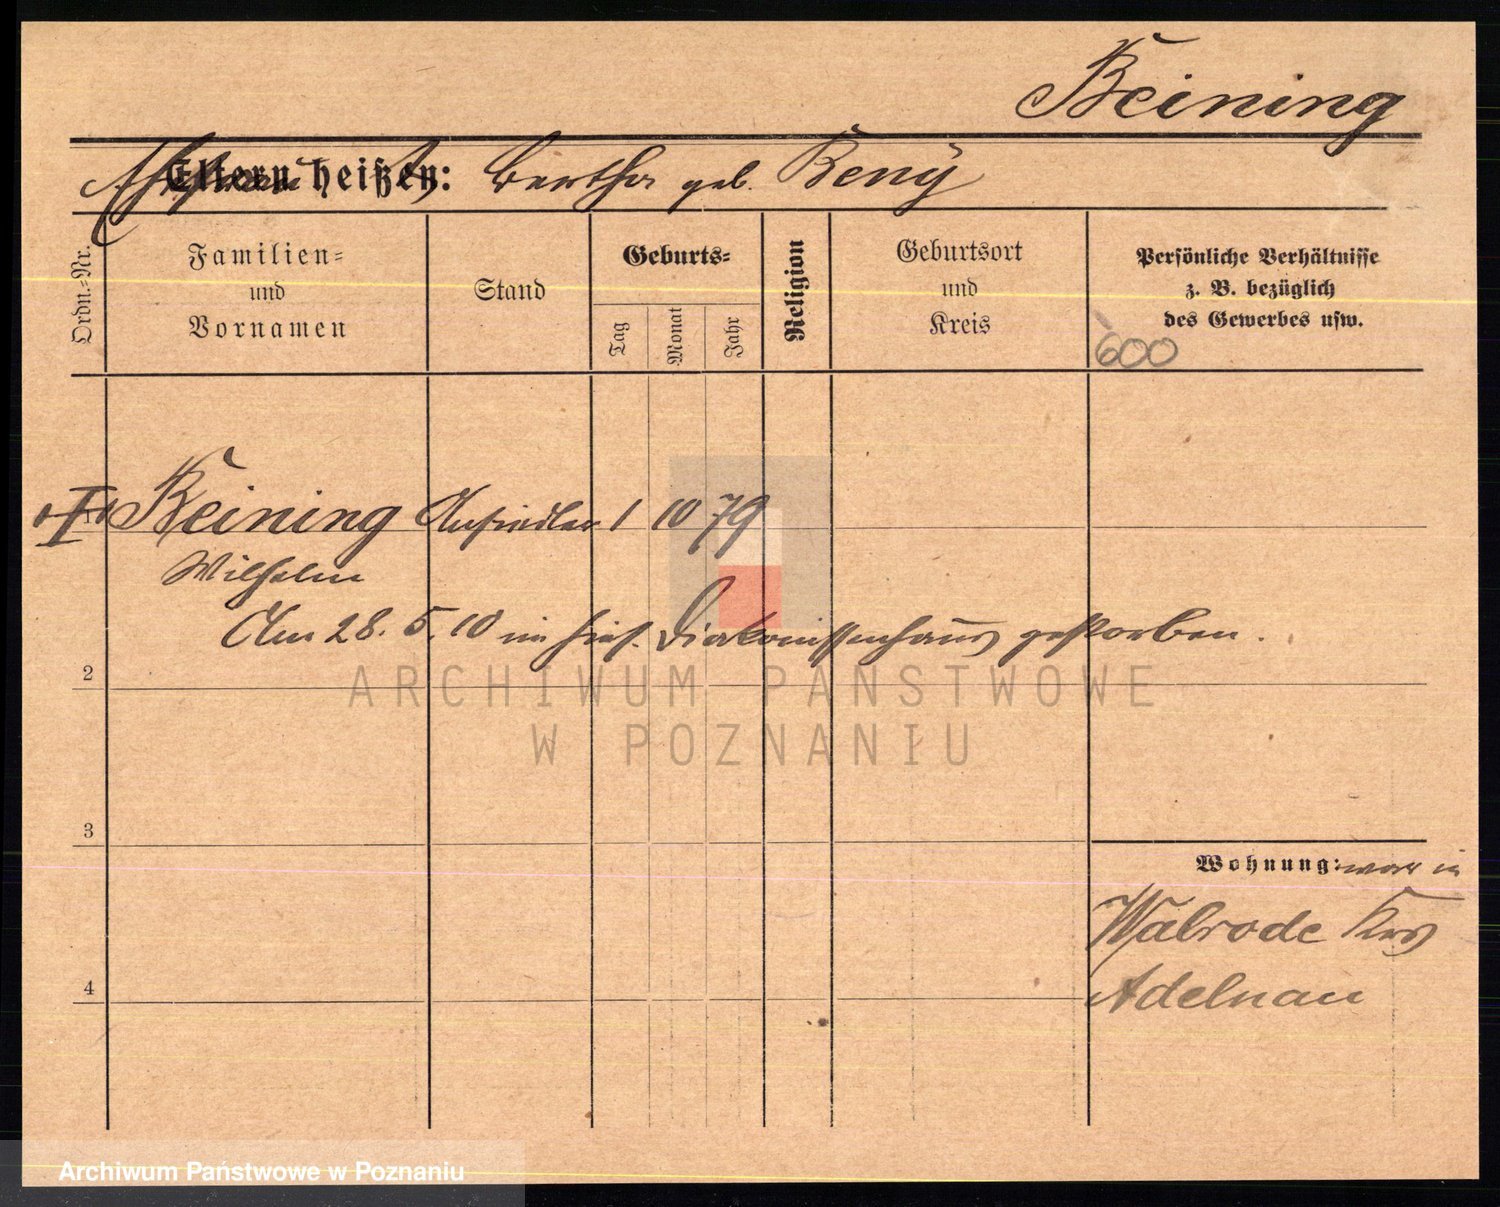 Reining
Eltern heißen: Ehefrau Bertha geb. Reny
Ordn.=Nr.
Familien=
und
Vornamen
Stand
Geburts=
Tag
Monat
Jahr
Religion
Geburtsort
und
Kreis
Persönliche Verhältnisse
z. B. bezüglich
des Gewerbes usw.
600
1 Reining Ansiedler 1 10 79
Wilhelm
Am 28. 5. 10 im hies. Diakonissenhaus gestorben.
2
3
4
Wohnung: war in
Walrode Krs
Adelnau
ARCHIWUM PAŃSTWOWE
W POZNANIU
Archiwum Państwowe w Poznaniu